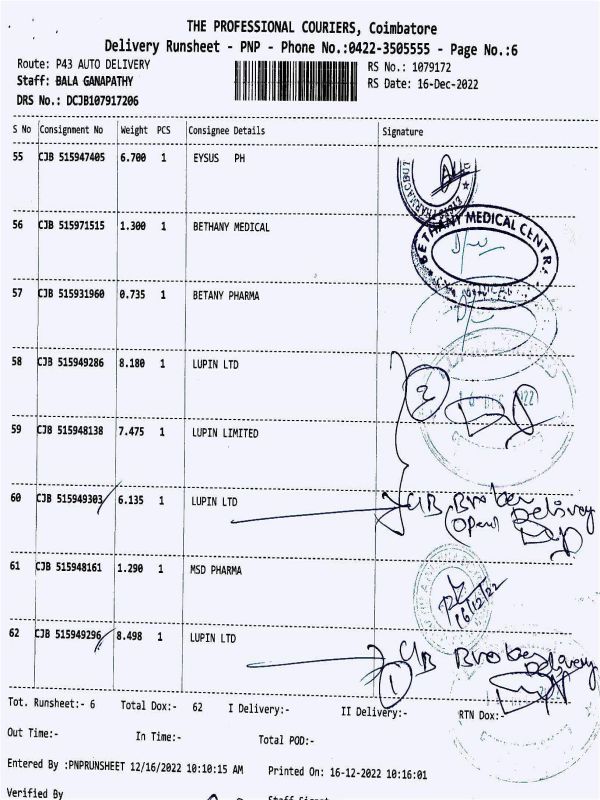 THE PROFESSIONAL COURIERS, Coimbatore
Delivery Runsheet - PNP - Phone No.:0422-3505555 - Page No.:6
Route: P43 AUTO DELIVERY RS No.: 1079172
Staff: BALA GANAPATHY RS Date: 16-Dec-2022
DRS No.: DCJB107917206
S No Consignment No Weight PCS Consignee Details Signature
55 CJB 515947405 6.700 1 EYSUS PH
56 CJB 515971515 1.300 1 BETHANY MEDICAL
BETHANY MEDICAL CENTR
57 CJB 515931960 0.735 1 BETANY PHARMA
58 CJB 515949286 8.180 1 LUPIN LTD
3
59 CJB 515948138 7.475 1 LUPIN LIMITED
60 CJB 515949303 6.135 1 LUPIN LTD
Delivery
61 CJB 515948161 1.290 1 MSD PHARMA
16/12/22
62 CJB 515949296 8.498 1 LUPIN LTD
Delivery
1
Tot. Runsheet:- 6 Total Dox:- 62 I Delivery:- II Delivery:- RTN Dox:-
Out Time:- In Time:- Total POD:-
Entered By :PNPRUNSHEET 12/16/2022 10:10:15 AM Printed On: 16-12-2022 10:16:01
Verified By